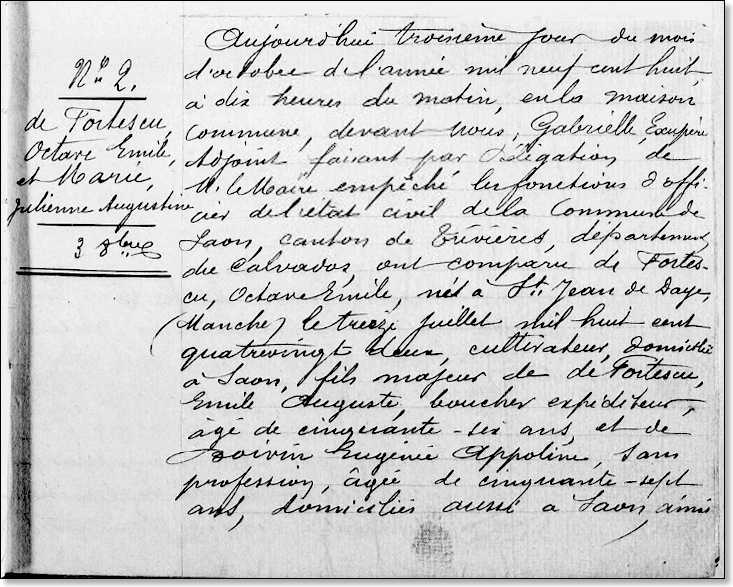 Nº 2.
de Fortescu,
Octave Emile,
et Marie,
Julienne Augustine
3 8bre
Aujourd'hui troisième jour du mois
d'octobre de l'année mil neuf cent huit,
à dix heures du matin, en la maison
commune, devant nous, Gabrielle, Exupère
Adjoint faisant par délégation de
M. le Maire empêché les fonctions d'offi
cier de l'état civil de la Commune de
Saon, canton de Trévières, département
du Calvados, ont comparu de Fortes-
cu, Octave Emile, né à St Jean de Daye,
(Manche) le treize juillet mil huit cent
quatre vingt deux, cultivateur, domicilié
à Saon, fils majeur de de Fortescu,
Emile Auguste, boucher expéditeur,
âgé de cinquante-six ans, et de
Boivin Eugénie Appoline, sans
profession, âgée de cinquante-sept
ans, domiciliés aussi à Saon, ainsi